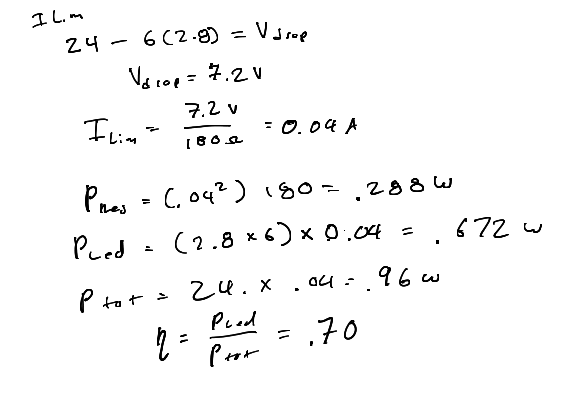 I Lim
24 - 6(2.8) = Vdrop
Vdrop = 7.2 V
ILim = 7.2 V / 180 Ω = 0.04 A
Pres = (.04²) 180 = .288 W
PLed = (2.8 × 6) × 0.04 = .672 W
Ptot = 24. × .04 = .96 W
η = PLed / Ptot = .70